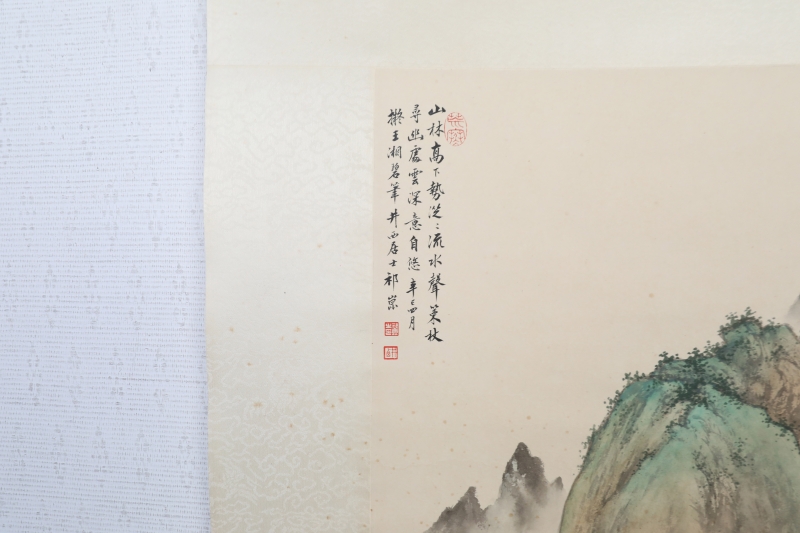 山林高下勢淙〻流水聲策杖
尋幽處雲深意自悠 辛巳四月
擬王湘碧筆 井西居士祁崑